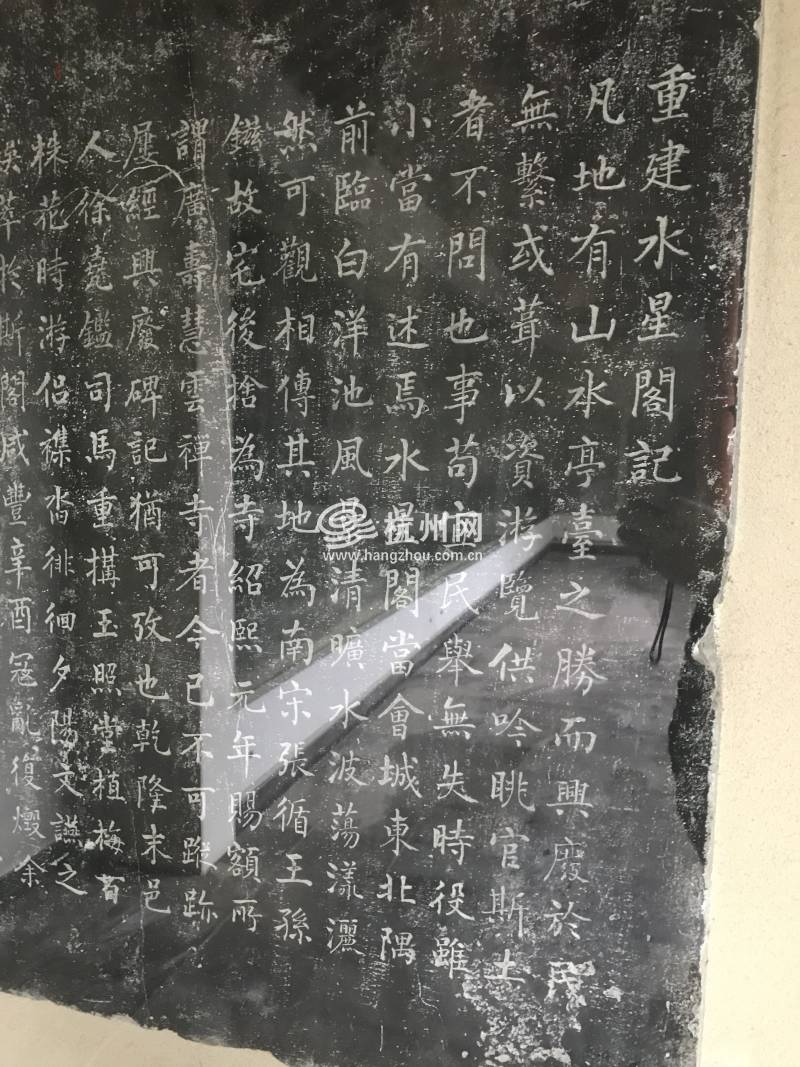 重建水星閣記
凡地有山水亭臺之勝而興廢於民
無繫或葺以資游覽供吟眺官斯土
者不問也事苟 民舉無失時役雖
小當有述焉水星閣當會城東北隅
前臨白洋池風景清曠水波蕩漾灑
然可觀相傳其地為南宋張循王孫
鎡故宅後捨為寺紹熙元年賜額所
謂廣壽慧雲禪寺者今已不可蹤跡
屢經興廢碑記猶可攷也乾隆末邑
人徐堯鑑司馬重搆玉照堂植梅百
株花時游侶襍沓徘徊夕陽文讌之
娛萃於斯閣咸豐辛酉冦亂復燬余
杭州网
www.hangzhou.com.cn